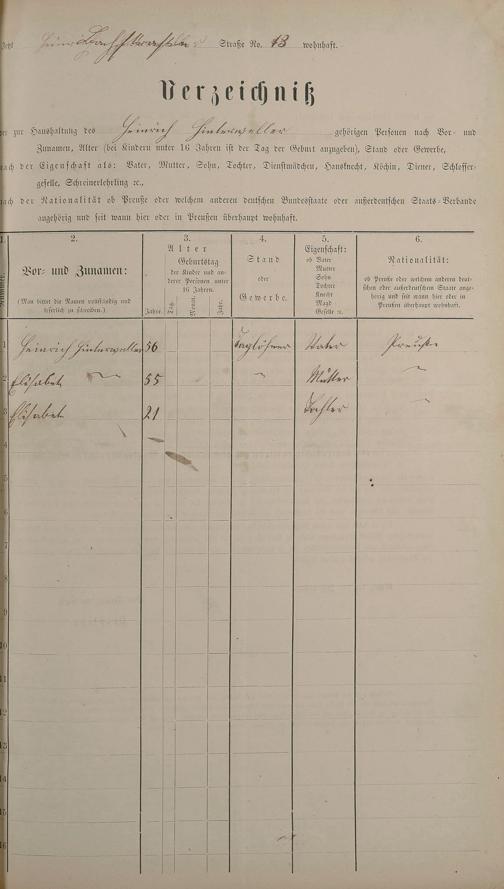 Jetzt Straße No. 13 wohnhaft.
Verzeichniß
der zur Haushaltung des Heinrich Hinterweller gehörigen Personen nach Vor- und
Zunamen, Alter (bei Kindern unter 16 Jahren ist der Tag der Geburt anzugeben), Stand oder Gewerbe,
nach der Eigenschaft als: Vater, Mutter, Sohn, Tochter, Dienstmädchen, Hausknecht, Köchin, Diener, Schlosser-
geselle, Schreinerlehrling ꝛc.,
nach der Nationalität ob Preuße oder welchem anderen deutschen Bundesstaate oder außerdeutschen Staats-Verbande
angehörig und seit wann hier oder in Preußen überhaupt wohnhaft.
1.
Nummer.
2.
Vor- und Zunamen:
(Man bittet die Namen vollständig und
leserlich zu schreiben.)
3.
Alter
Geburtstag
der Kinder und an-
derer Personen unter
16 Jahren.
Jahre.
Tag.
Monat.
Jahr.
4.
Stand
oder
Gewerbe.
5.
Eigenschaft:
ob Vater
Mutter
Sohn
Tochter
Knecht
Magd
Geselle ꝛc.
6.
Nationalität:
ob Preuße oder welchem anderen deut-
schen oder außerdeutschen Staate ange-
hörig und seit wann hier oder in
Preußen überhaupt wohnhaft.
1 Heinrich Hinterweller 56 Taglöhner Vater Preuße
2 Elisabet 55 Mutter
3 Elisabet 21 Tochter
4
5
6
7
8
9
10
11
12
13
14
15
16